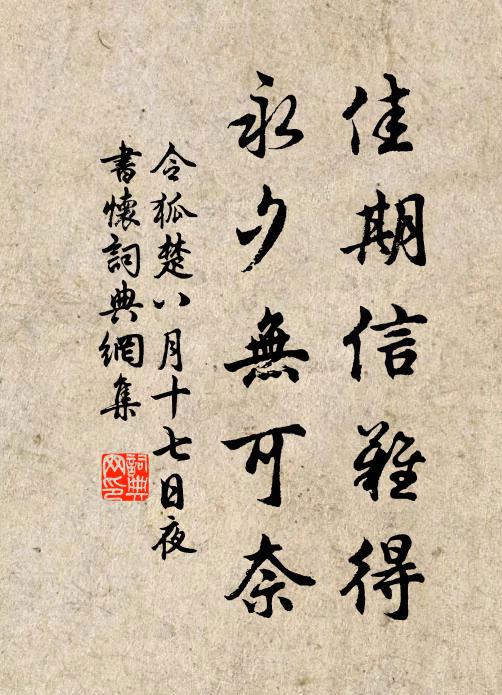 佳期信難得
永夕無可奈
令狐楚八月十七日夜
書懷詞典網集
詞典網印